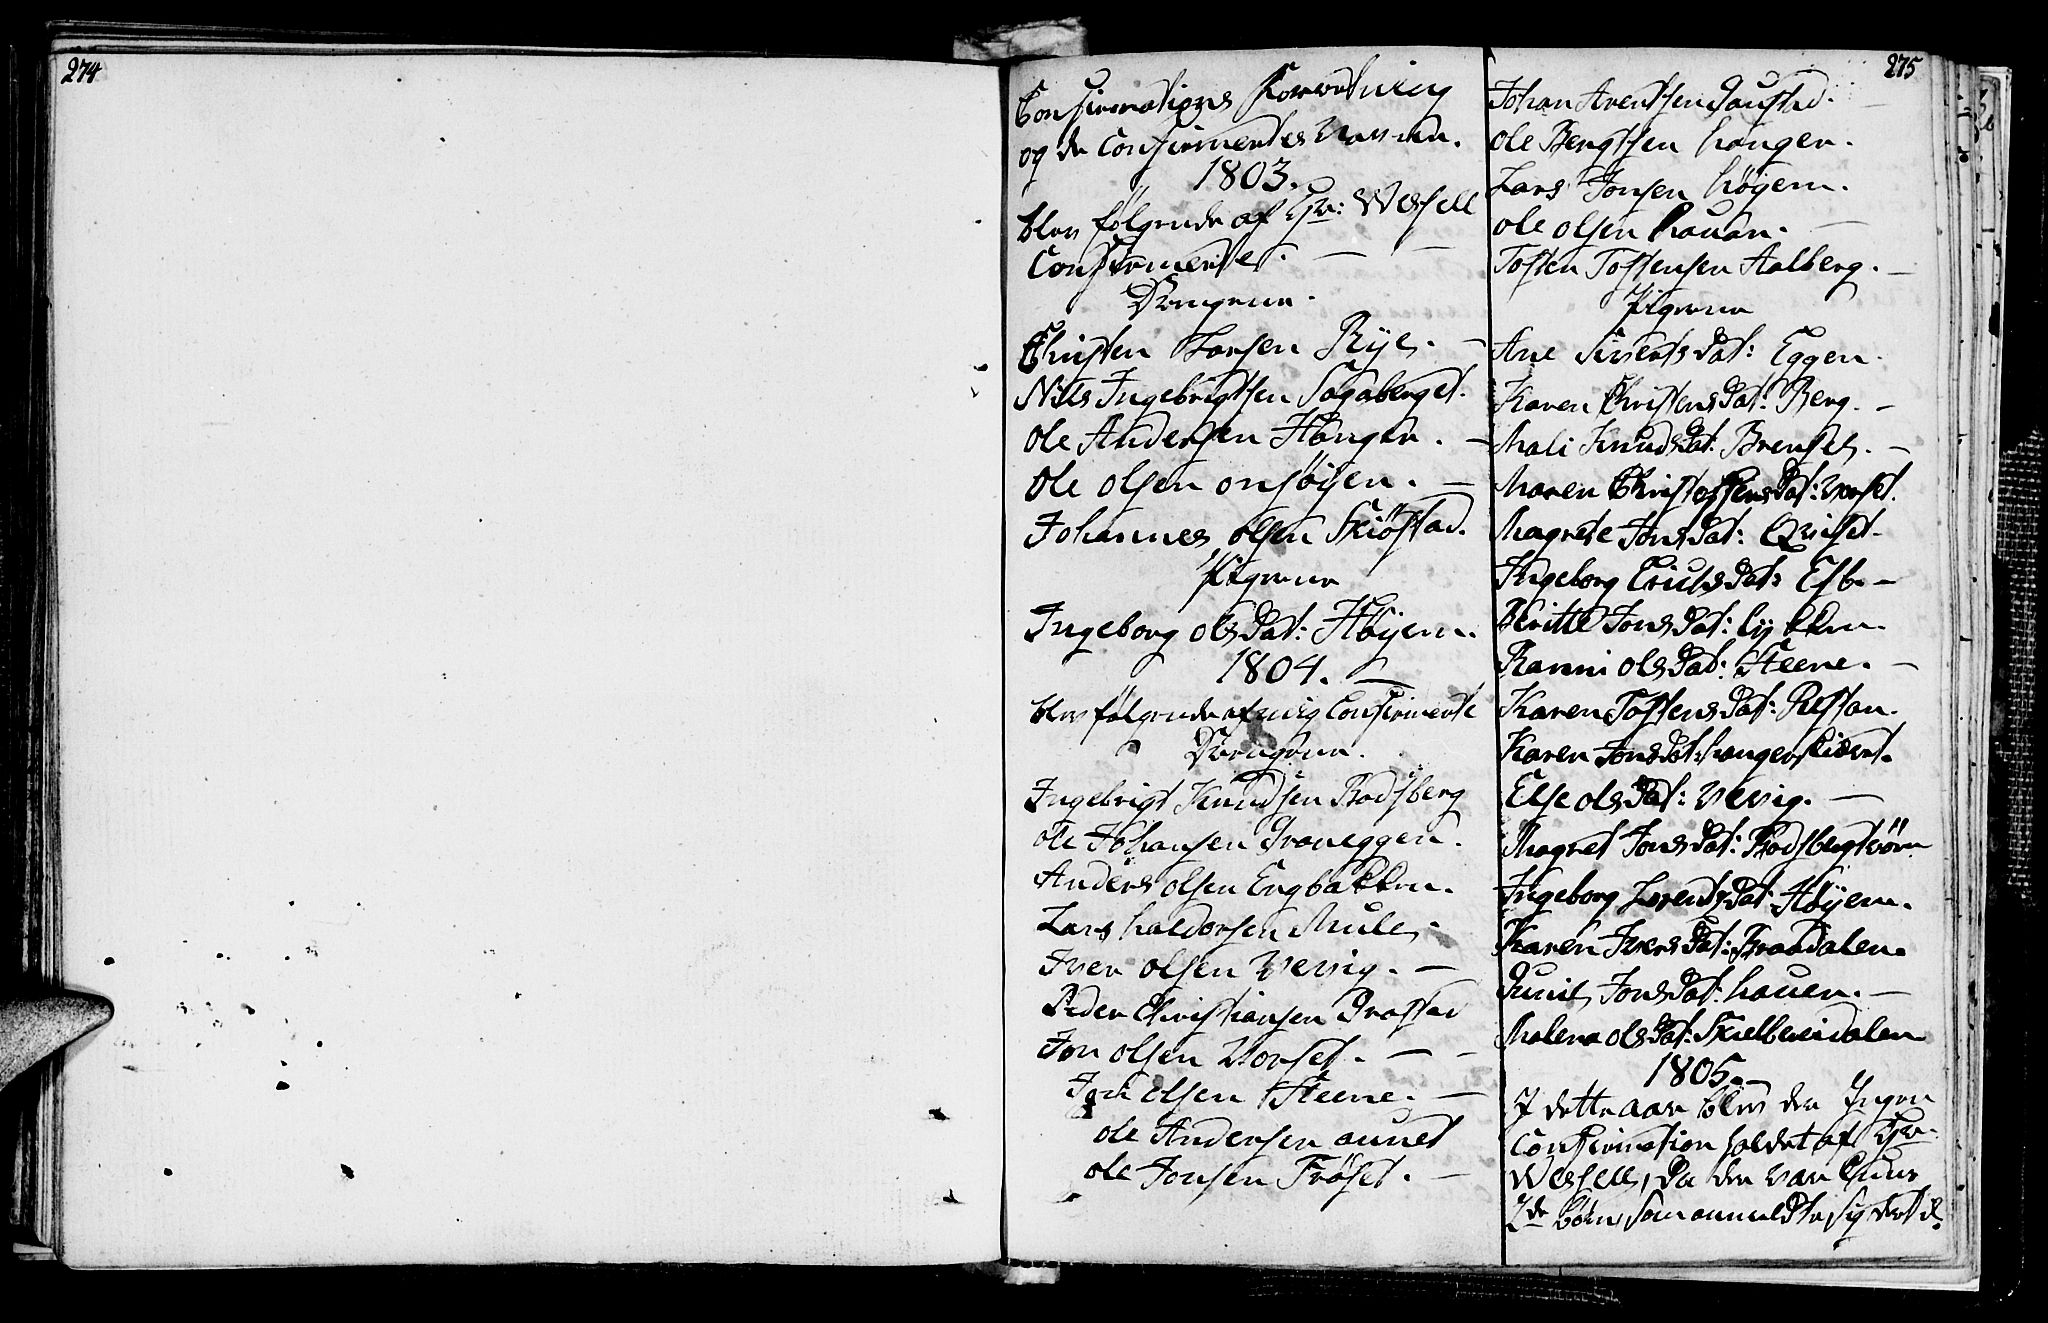 274
275
Confirmations Forretning
og de Confirmertes Navnen.
1803.
blev følgende af Hr: Wessell
Confirmertes. — —
Drengene.
Christen Larsen Rye. —
Nils Ingebrigtsen Sagaberget.
Ole Andersen Hangen. —
Ole Olsen Onsøyen. —
Johannes Olsen Skiøstad.
Pigerne
Ingeborg OlsDat: Høyem.
1804. —
blev følgende af mig Confirmerte
Drengene.
Ingebrigt Knudsen Rodsberg
Ole Johansen Graneggen.
Anders Olsen Engbakken.
Lars Haldorsen Mule.
Iver Olsen Vevig. —
Peder Christiansen
Jon Olsen Vorset. — —
Jon Olsen Steene. —
Ole Andersen aunet
Ole Jonsen Frøset. —
Johan Arentsen
Ole Bergtsen Hangen.
Lars Jonsen Høyem.
Ole Olsen Hauan. —
Tosten Tostensen Aalberg. —
Pigerne
Ane SivertsDat: Eggen.
Karen ChristensDat: Berg. —
Mali KnudsDat: Brenset. —
Maren ChristoffersDat: Vorset.
Magrete JonsDat: Qviset.
Ingeborg EricksDat: —
Beritte JonsDat: Lykken.
Ranni OlsDat: Steene. —
Karen TostensDat: Restan.
Karen JonsDat:
Else OlsDat: Vevig. —
Magret JonsDat:
Ingeborg LorentsDat: Høyem.
Karen IversDat: Braadalen.
Gunil JonsDat: Hauen. —
Malena OlsDat: Skielbreidalen
1805.
I dette aar blev der Ingen
Confirmation holdet af Hr.
Wessell, da der var Kuns
2de Børn som anmeldte sig dertil.